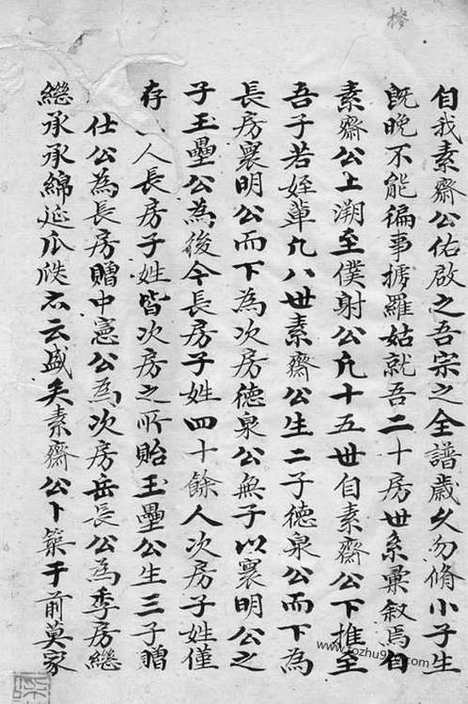 自我素齋公佑啟之吾宗之全譜歲久勿脩小子生
既晚不能徧事摭羅姑就吾二十房世系彙叙焉自
素齋公上溯至僕射公凡十五世自素齋公下推至
吾子若姪輩凡八世素齋公生二子德泉公而下為
長房襄明公而下為次房德泉公無子以襄明公之
子玉壘公為後今長房子姓四十餘人次房子姓僅
存人長房子姓皆次房之所貽玉壘公生三子贈
仕公為長房贈中憲公為次房岳長公為季房繼
繼承承綿延瓜瓞不云盛矣素齋公卜築于前莫家